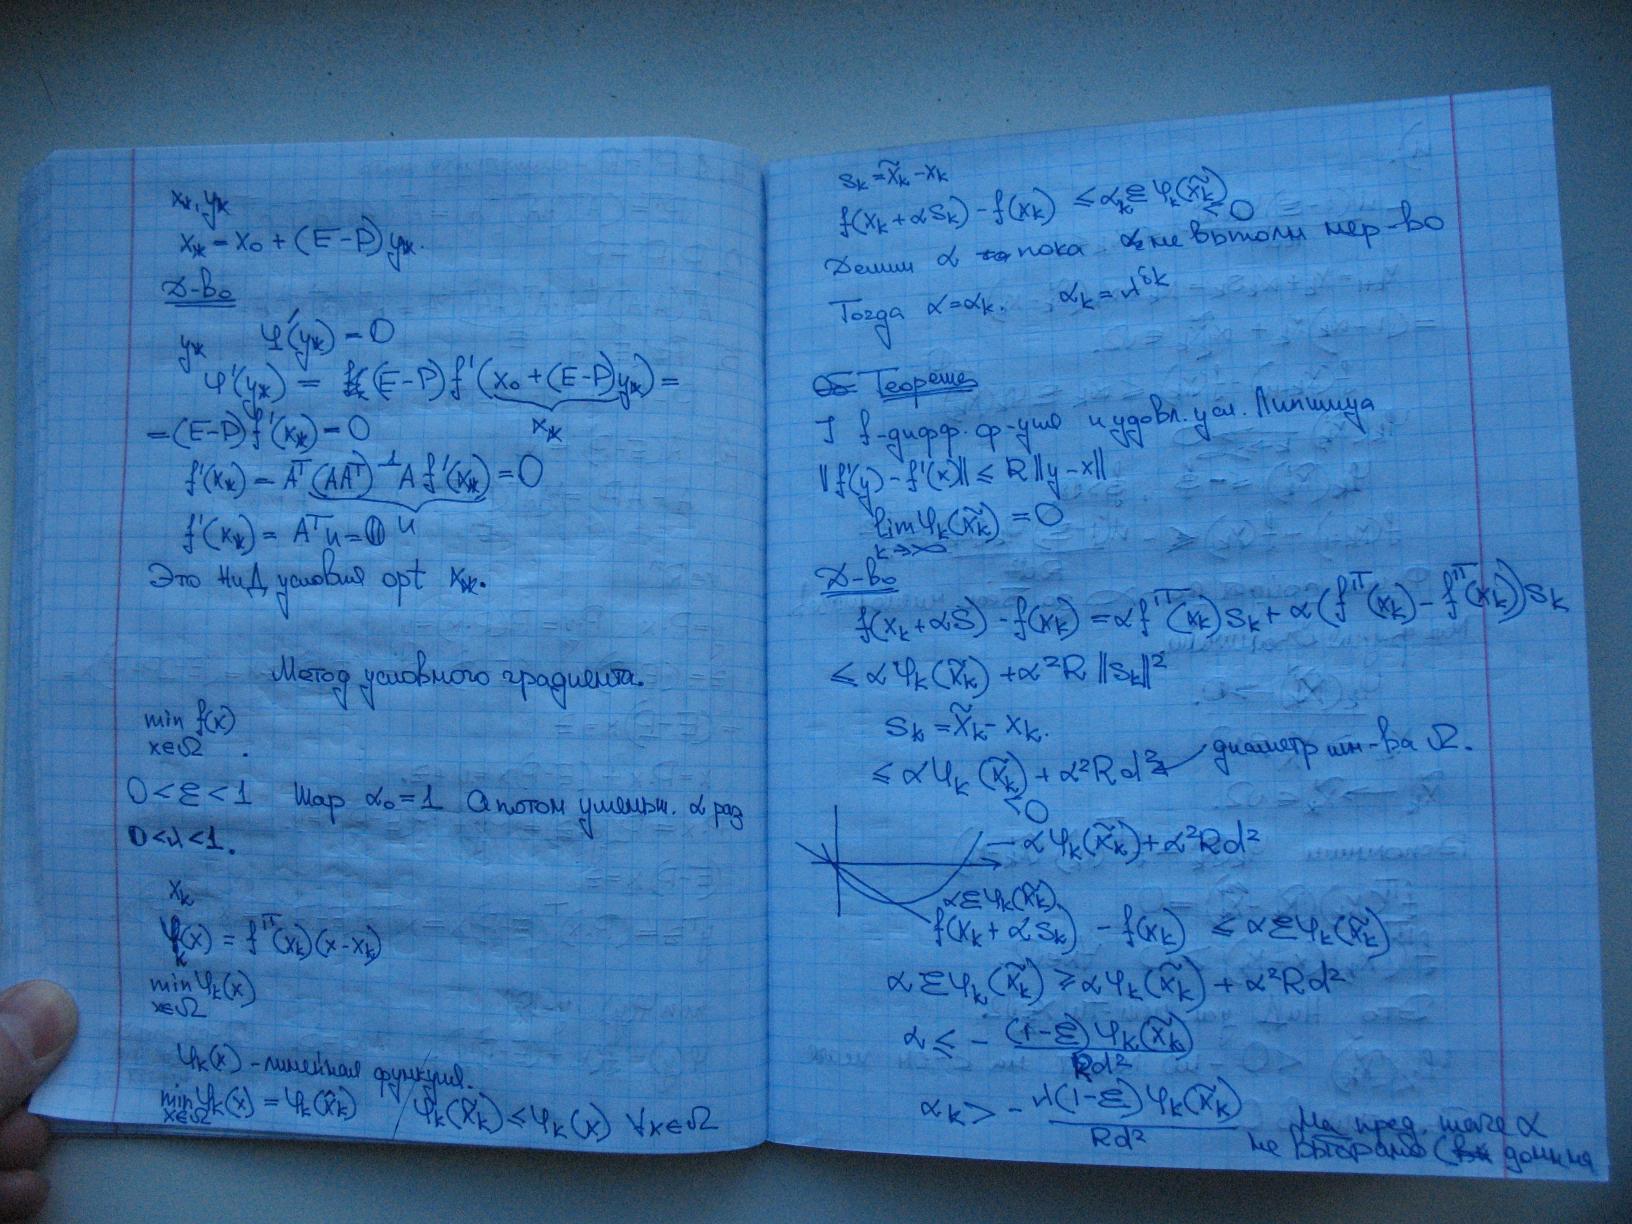 x*, y*
x* = x₀ + (E−P) y*.
Д-во
y* φ'(y*) = 0
φ'(y*) = (E−P) f'(x₀ + (E−P) y*) =
x*
= (E−P) f'(x*) = 0
f'(x*) − Aᵀ(AAᵀ)⁻¹ A f'(x*) = 0
u
f'(x*) = Aᵀu =
Это НиД условия opt x*.
Метод условного градиента.
min f(x)
x∈Ω .
0 < ε < 1 Шаг α₀ = 1 а потом уменьш. α раз
0 < λ < 1.
x_k
φ_k(x) = f'ᵀ(x_k)(x − x_k)
min φ_k(x)
x∈Ω
φ_k(x) - линейная функция.
min φ_k(x) = φ_k(x̃_k) / φ_k(x̃_k) ≤ φ_k(x) ∀x∈Ω
x∈Ω
s_k = x̃_k − x_k
f(x_k + αs_k) − f(x_k) ≤ α_k ε φ_k(x̃_k)
< 0
Делим α пока не выполн нер-во
Тогда α = α_k. α_k = λ^{i_k}
Теорема
] f - дифф. ф-ция и удовл. усл. Липшица
‖f'(y) − f'(x)‖ ≤ R‖y − x‖
lim φ_k(x̃_k) = 0
k→∞
Д-во
f(x_k + αS) − f(x_k) = αf'ᵀ(x_k)s_k + α(f'ᵀ(x_k) − f'ᵀ(x_k))s_k
≤ αφ_k(x̃_k) + α²R‖s_k‖²
s_k = x̃_k − x_k.
≤ αφ_k(x̃_k) + α²Rd² диаметр мн-ва Ω.
< 0
αφ_k(x̃_k) + α²Rd²
αεφ_k(x̃_k)
f(x_k + αs_k) − f(x_k) ≤ αεφ_k(x̃_k)
αεφ_k(x̃_k) ≥ αφ_k(x̃_k) + α²Rd²
α ≤ − (1−ε)φ_k(x̃_k) / Rd²
α_k > − λ(1−ε)φ_k(x̃_k) / Rd²
На пред. шаге α
не выбрано (